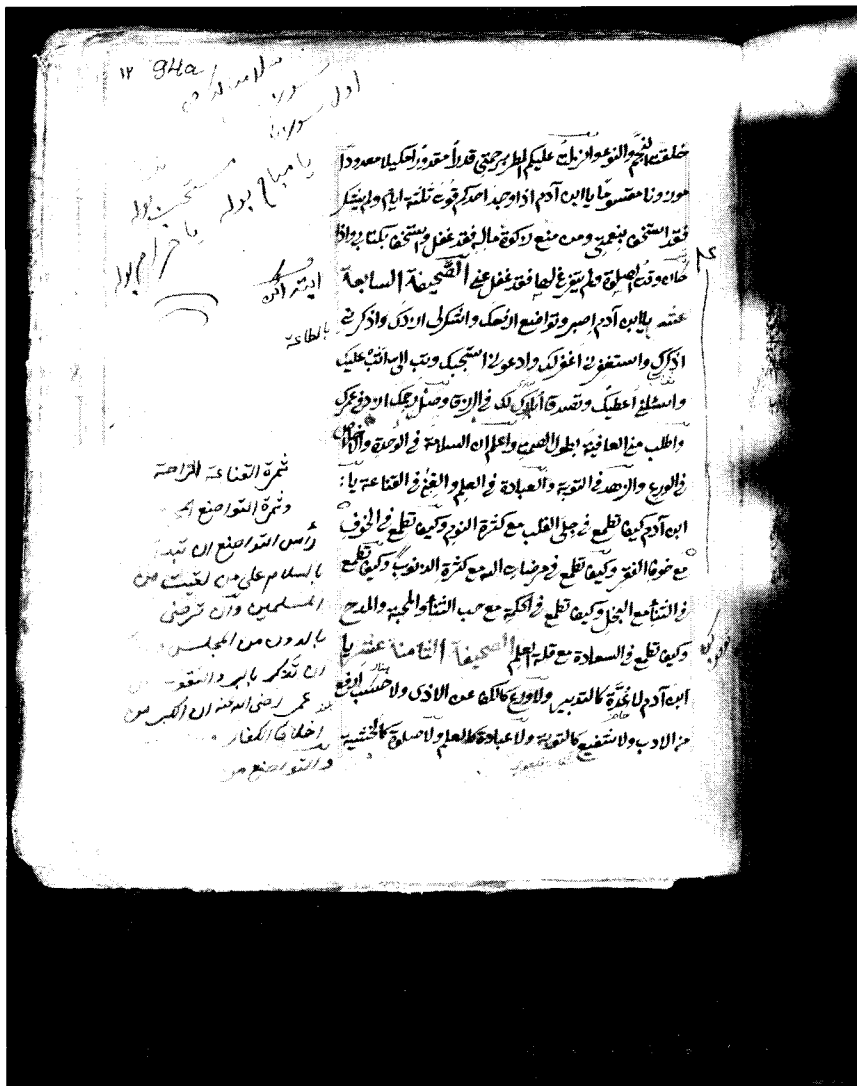 ١٢ 94a
اول سورة
يا مباح بوله
مستحب بوله
يا حرام بوله
خلقت النجم والنوء وانزلت عليكم المطر برحمتى قدراً مقدوراً مكيلا معدودا
موزونا مقسوما يا ابن آدم اذا وجد احدكم قوت ثلثة ايام ولم يشكر
فقد استخف بنعمتى ومن منع زكوة ماله فقد غفل واستخف بكتابى واذا
حان وقت الصلوة ولم يتفرغ لها فقد غفل عنى الصحيفة السابعة
عشر يا ابن آدم اصبر وتواضع ارفعك واشكرلى ازدك واذكرنى
اذكرك واستغفرنى اغفرلك وادعونى استجبك وتب الى اتب عليك
واسئلنى اعطيك وتصدق ابارك لك فى الرزق وصل رحمك ازد فى عمرك
واطلب منى العافية بطول الصمت واعلم ان السلامة فى الوحدة والاخلاص
فى الورع والزهد فى التوبة والعبادة فى العلم والغنى فى القناعة يا
ابن آدم كيف تطمع فى جلى القلب مع كثرة النوم وكيف تطمع فى الخوف
مع خوف الفقر وكيف تطمع فى مرضات الله مع كثرة الذنوب وكيف تطمع
فى الثنأ مع البخل وكيف تطمع فى الحكمة مع حب الثنأ والمحبة والمدح
وكيف تطمع فى السعادة مع قلة العلم الصحيفة الثامنة عشر يا
ابن آدم لا عدة كالتدبير ولا ورع كالكف عن الاذى ولا حسب ارفع
من الادب ولا شفيع كالتوبة ولا عبادة كالعلم ولا صلوة كالخشية
بالطاعة
ثمرة القناعة الراحة
وثمرة التواضع
رأس التواضع ان تبدأ
بالسلام على من لقيت من
المسلمين وان ترضى
بالدون من المجلس
ان تذكر بالبر والتقوى
عمر رضى الله عنه ان الكبر من
اخلاق الكفار
والتواضع من